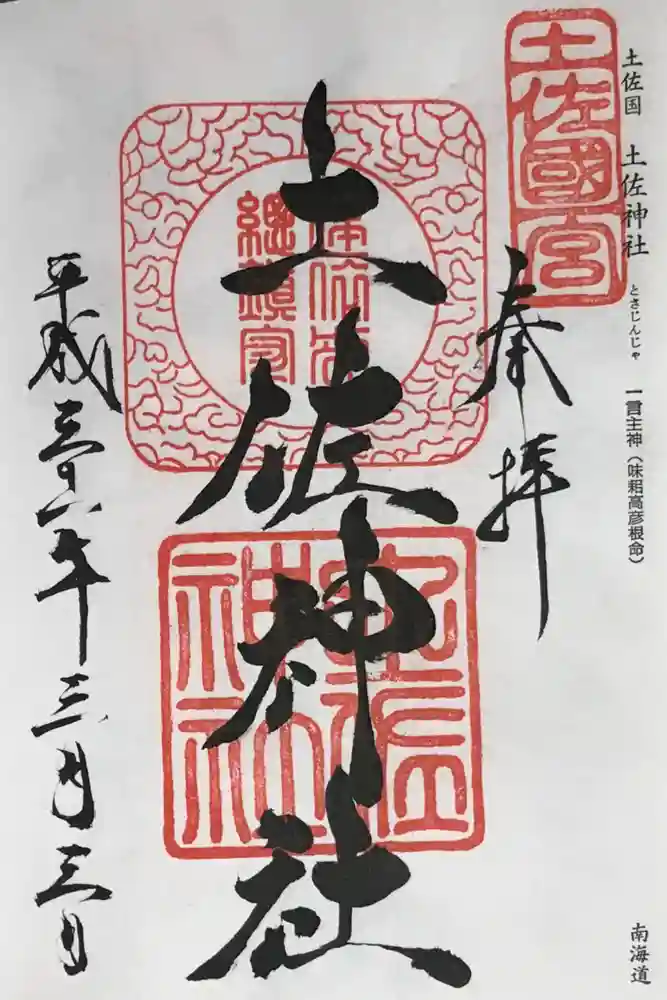 土佐国 土佐神社 とさじんじゃ 一言主神(味耜高彦根命)
南海道
土佐國一宮
奉拝
土佐神社
總鎮守
土佐神社
平成三十一年三月三日